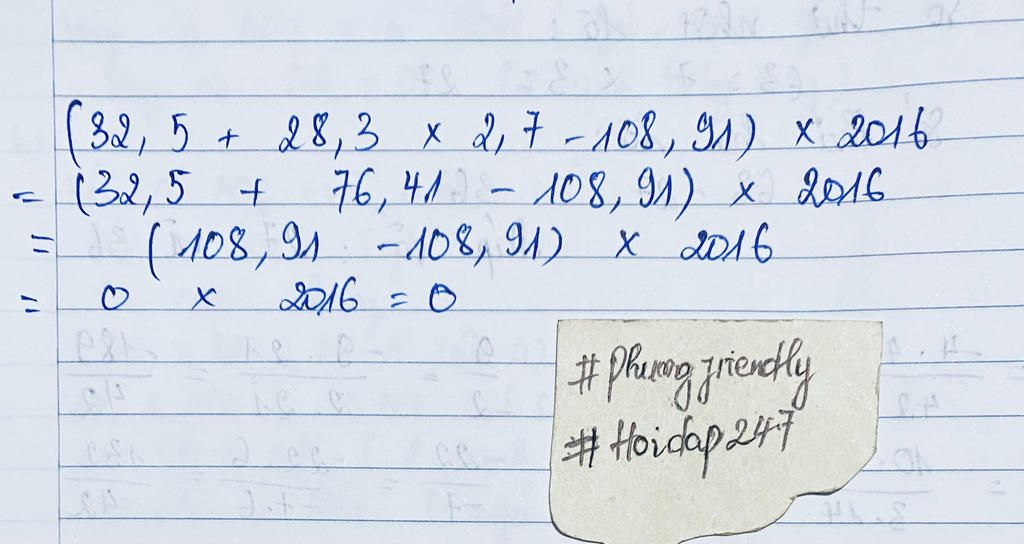 (32,5 + 28,3 × 2,7 - 108,91) × 2016
= (32,5 + 76,41 - 108,91) × 2016
= (108,91 - 108,91) × 2016
= 0 × 2016 = 0
# Phuong friendly
# Hoidap247